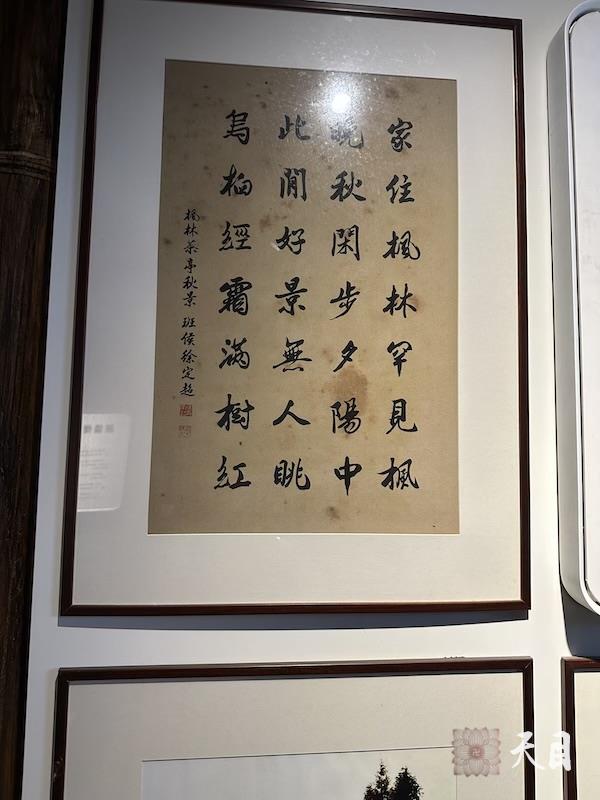 家住楓林罕見楓
晚秋閑步夕陽中
此間好景無人眺
烏桕經霜滿樹紅
楓林茶亭秋景 班侯徐定超
天目